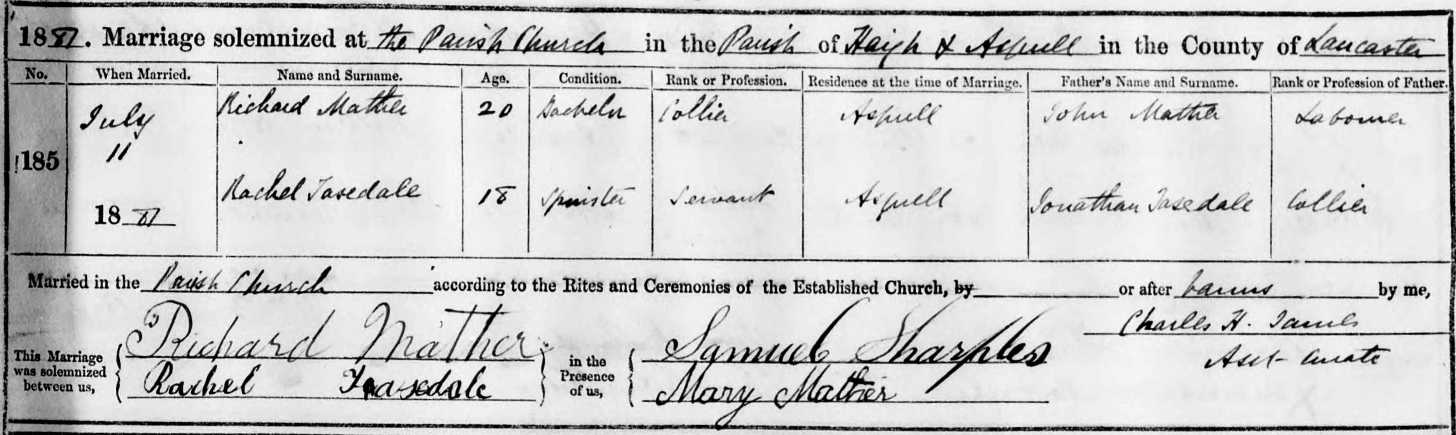 1887. Marriage solemnized at the Parish Church in the Parish of Haigh & Aspull in the County of Lancaster
No. When Married. Name and Surname. Age. Condition. Rank or Profession. Residence at the time of Marriage. Father's Name and Surname. Rank or Profession of Father.
185 July 11 1887 Richard Mather 20 Bachelor Collier Aspull John Mather Labourer
Rachel Tasedale 18 Spinster Servant Aspull Jonathan Tasedale Collier
Married in the Parish Church according to the Rites and Ceremonies of the Established Church, by or after banns by me,
Charles H. James
Asst Curate
This Marriage was solemnized between us,
Richard Mather
Rachel Teasedale
in the Presence of us,
Samuel Sharples
Mary Mather